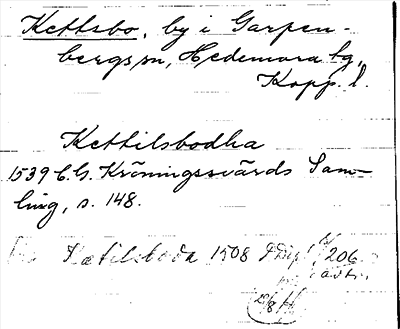 Kettsbo, by i Garpen-
bergs sn, Hedemora tg,
Kopp. l.
Kettilsbodha
1539 C. G. Kröningssvärds Sam-
ling, s. 148.
Kætilsboda 1508 206
avtr.